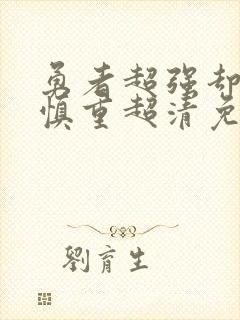 勇者超强却
慎重超清免
劉育生